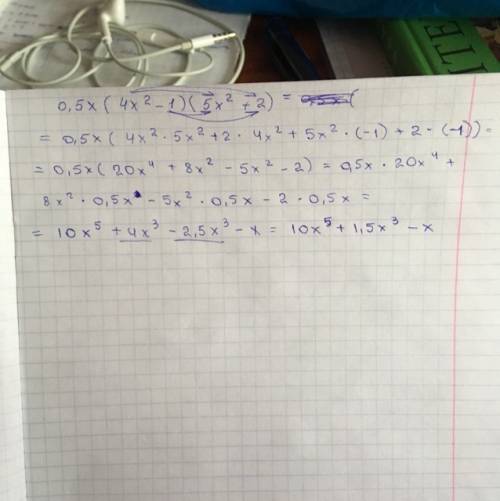 0,5x(4x² - 1)(5x² + 2) =
= 0,5x(4x² · 5x² + 2 · 4x² + 5x² · (-1) + 2 · (-1)) =
= 0,5x(20x⁴ + 8x² - 5x² - 2) = 0,5x · 20x⁴ +
8x² · 0,5x - 5x² · 0,5x - 2 · 0,5x =
= 10x⁵ + 4x³ - 2,5x³ - x = 10x⁵ + 1,5x³ - x